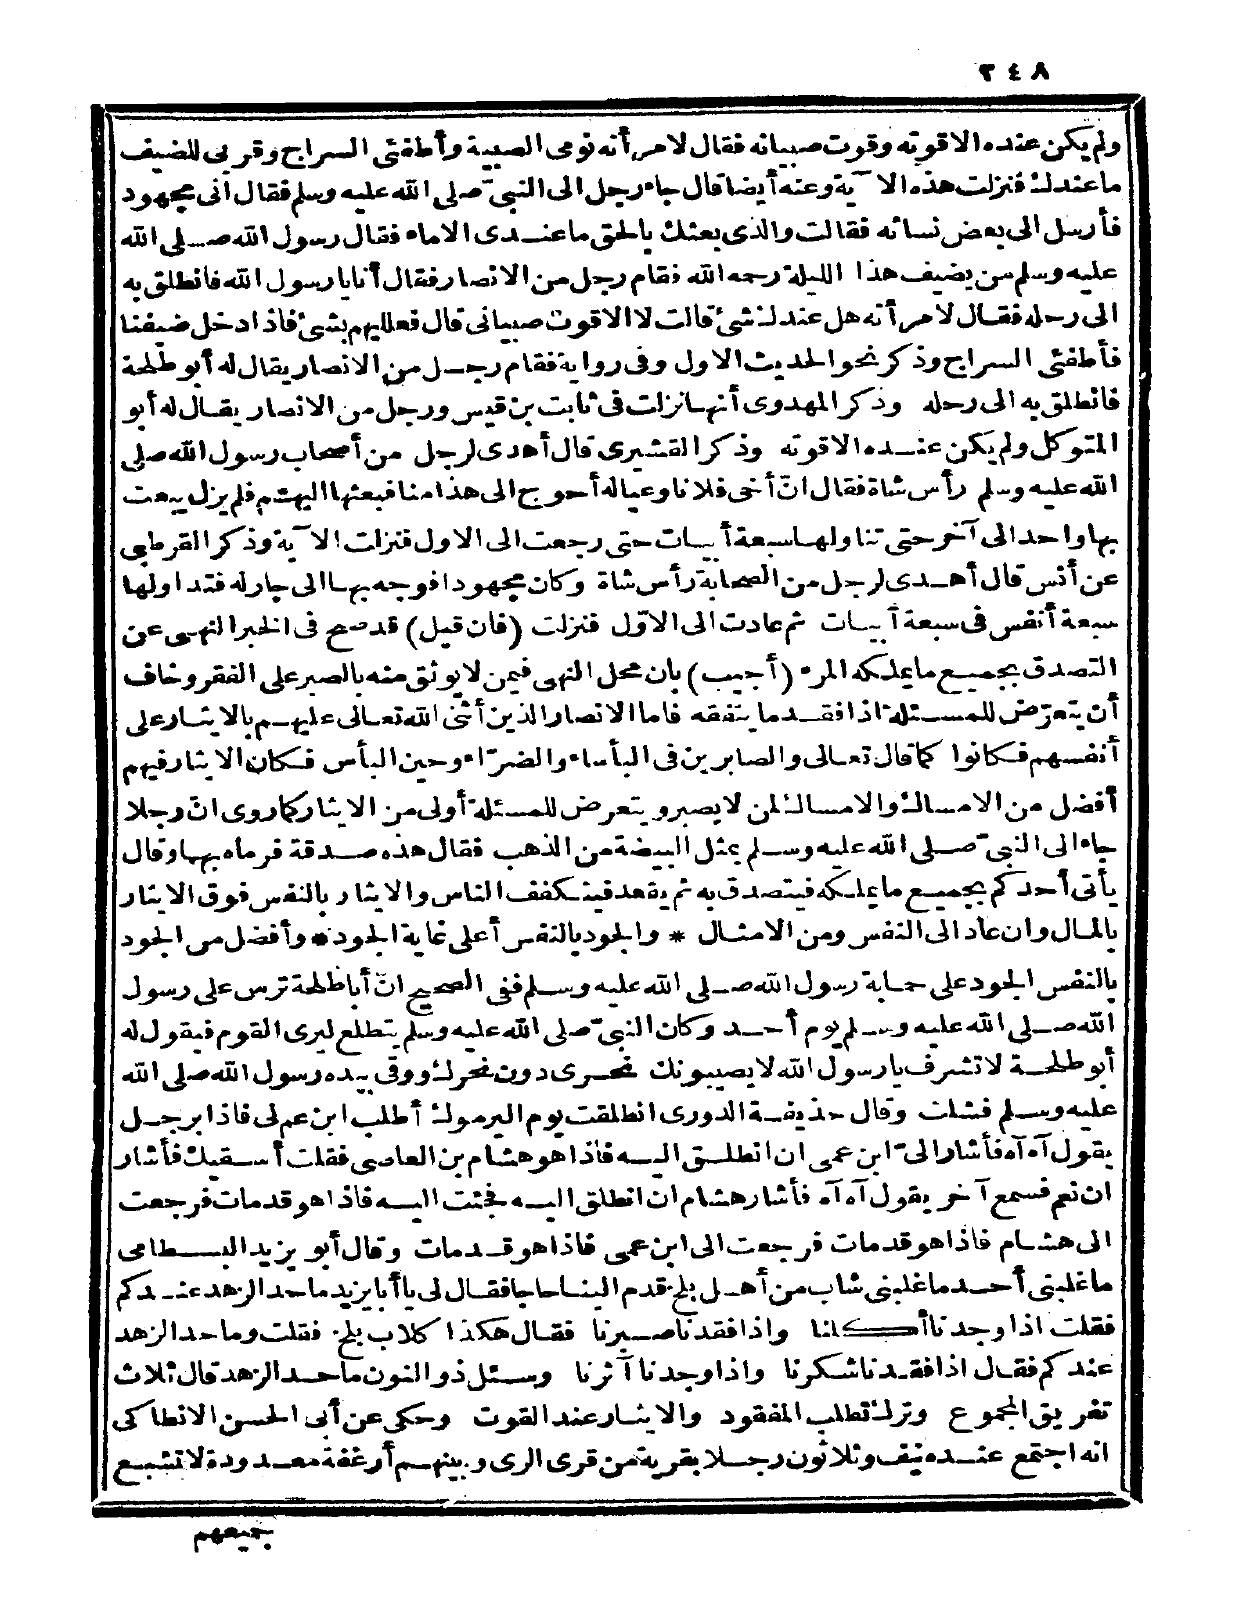 ٢٤٨
ولم يكن عنده الا قوته وقوت صبيانه فقال لامرأته نومى الصبية وأطفئى السراج وقربى للضيف
ما عندك فنزلت هذه الآية وعنه أيضا قال جاء رجل الى النبىّ صلى الله عليه وسلم فقال انى مجهود
فأرسل الى بعض نسائه فقالت والذى بعثك بالحق ما عندى الا ماء فقال رسول الله صلى الله
عليه وسلم من يضيف هذا الليلة رحمه الله فقام رجل من الانصار فقال أنا يا رسول الله فانطلق به
الى رحله فقال لامرأته هل عندك شئ قالت لا الا قوت صبيانى قال فعلليهم بشئ فاذا دخل ضيفنا
فأطفئى السراج وذكر نحو الحديث الاول وفى رواية فقام رجل من الانصار يقال له أبو طلحة
فانطلق به الى رحله وذكر المهدوى أنها نزلت فى ثابت بن قيس ورجل من الانصار يقال له أبو
المتوكل ولم يكن عنده الا قوته وذكر القشيرى قال أهدى لرجل من أصحاب رسول الله صلى
الله عليه وسلم رأس شاة فقال انّ أخى فلانا وعياله أحوج الى هذا منا فبعثها اليهم فلم يزل يبعث
بها واحد الى آخر حتى تناولها سبعة أبيات حتى رجعت الى الاول فنزلت الآية وذكر القرطبى
عن أنس قال أهدى لرجل من الصحابة رأس شاة وكان مجهودا فوجه بها الى جار له فتداولها
سبعة أنفس فى سبعة أبيات ثم عادت الى الاوّل فنزلت (فان قيل) قد صح فى الخبر النهى عن
التصدق بجميع ما يملكه المرء (أجيب) بان محل النهى فيمن لا يوثق منه بالصبر على الفقر وخاف
أن يتعرّض للمسئلة اذا فقد ما ينفقه فاما الانصار الذين أثنى الله تعالى عليهم بالايثار على
أنفسهم فكانوا كما قال تعالى والصابرين فى البأساء والضرّاء وحين البأس فكان الايثار فيهم
أفضل من الامساك والامساك لمن لا يصبر ويتعرض للمسئلة أولى من الايثار كما روى انّ رجلا
جاء الى النبىّ صلى الله عليه وسلم بمثل البيضة من الذهب فقال هذه صدقة فرماه بها وقال
يأتى أحدكم بجميع ما يملكه فيتصدق به ثم يقعد فيتكفف الناس والايثار بالنفس فوق الايثار
بالمال وان عاد الى النفس ومن الامثال * والجود بالنفس أعلى غاية الجود * وأفضل من الجود
بالنفس الجود على حماية رسول الله صلى الله عليه وسلم ففى الصحيح انّ أبا طلحة ترس على رسول
الله صلى الله عليه وسلم يوم أحد وكان النبىّ صلى الله عليه وسلم يتطلع ليرى القوم فيقول له
أبو طلحة لا تشرف يا رسول الله لا يصيبونك نحرى دون نحرك ووقى بيده رسول الله صلى الله
عليه وسلم فشلت وقال حذيفة الدورى انطلقت يوم اليرموك أطلب ابن عم لى فاذا برجل
يقول آه آه فأشار الىّ ابن عمى ان انطلق اليه فاذا هو هشام بن العاصى فقلت أسقيك فأشار
ان نعم فسمع آخر يقول آه آه فأشار هشام ان انطلق اليه فجئت اليه فاذا هو قد مات فرجعت
الى هشام فاذا هو قد مات فرجعت الى ابن عمى فاذا هو قد مات وقال أبو يزيد البسطامى
ما غلبنى أحد ما غلبنى شاب من أهل بلخ قدم الينا حاجا فقال لى يا أبا يزيد ما حد الزهد عندكم
فقلت اذا وجدنا أكلنا واذا فقدنا صبرنا فقال هكذا كلاب بلخ فقلت وما حد الزهد
عندكم فقال اذا فقدنا شكرنا واذا وجدنا آثرنا وسئل ذو النون ما حد الزهد قال ثلاث
تفريق المجموع وترك تطلب المفقود والايثار عند القوت وحكى عن أبى الحسن الانطاكى
انه اجتمع عنده نيف وثلاثون رجلا بقرية من قرى الرى وبينهم أرغفة معدودة لا تشبع
جميعهم